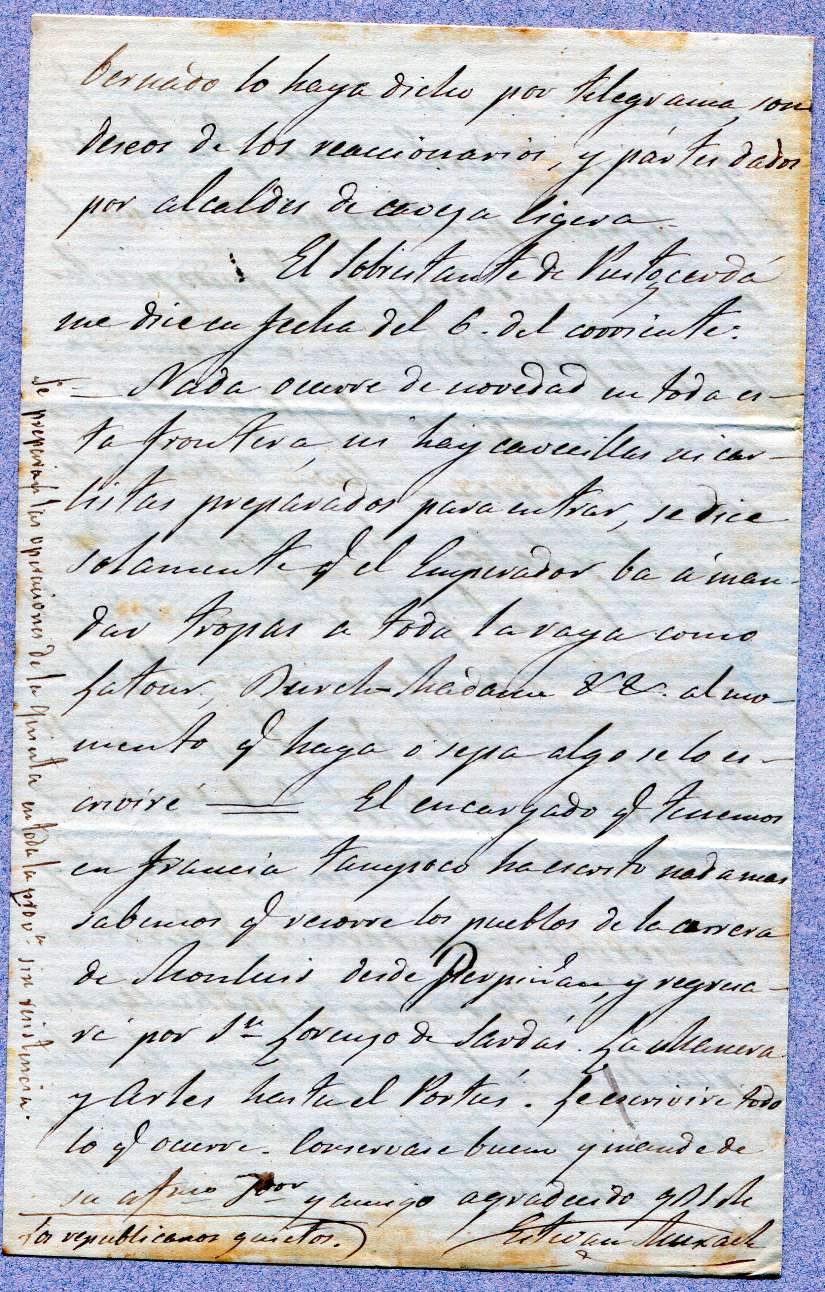 bernado lo haya dicho por telegrama, son
deseos de los reaccionarios, y partes dados
por alcaldes de caveza ligera.
El Sobrestante de Puitzcerdá
me dice en fecha del 6. del corriente.
= Nada ocurre de novedad en toda es-
ta frontera, ni hay cavecillas ni car-
listas preparados para entrar, se dice
solamente q.e el Emperador ba á man-
dar tropas a toda la raya como
Latour, Madame &&. al mo-
mento q.e haya o sepa algo se lo es-
criviré = El encargado q.e tenemos
en Francia tampoco ha escrito nada mas
sabemos q.e recorre los pueblos de la carrera
de Monluis desde Perpiñan, y regresa-
rá por S.n Lorenzo de Sardás. La Manera
y Arles hasta el Portús. Le escrivire todo
lo q.e ocurre. Conservase bueno y mande de
su afmo y amigo agradecido
Estevan
los republicanos quietos.)
Se preparan las operaciones de la Quinta en toda la prov.a sin resistencia.